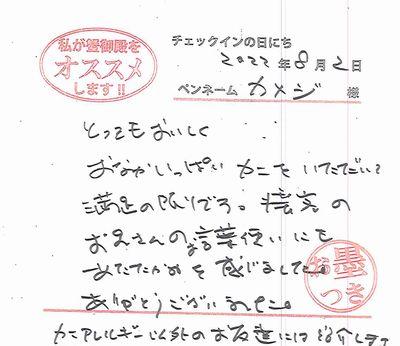 私が蟹御殿を
オススメ
します!!
チェックインの日にち
2022年8月2日
ペンネーム カメジ 様
とってもおいしく
おなかいっぱい カニを いただいて
満足の限りです。接客の
お兄さんの言葉使いにも
あたたかみを感じました。
ありがとうございました。
お墨つき
カニアレルギー以外のお友達には紹介し